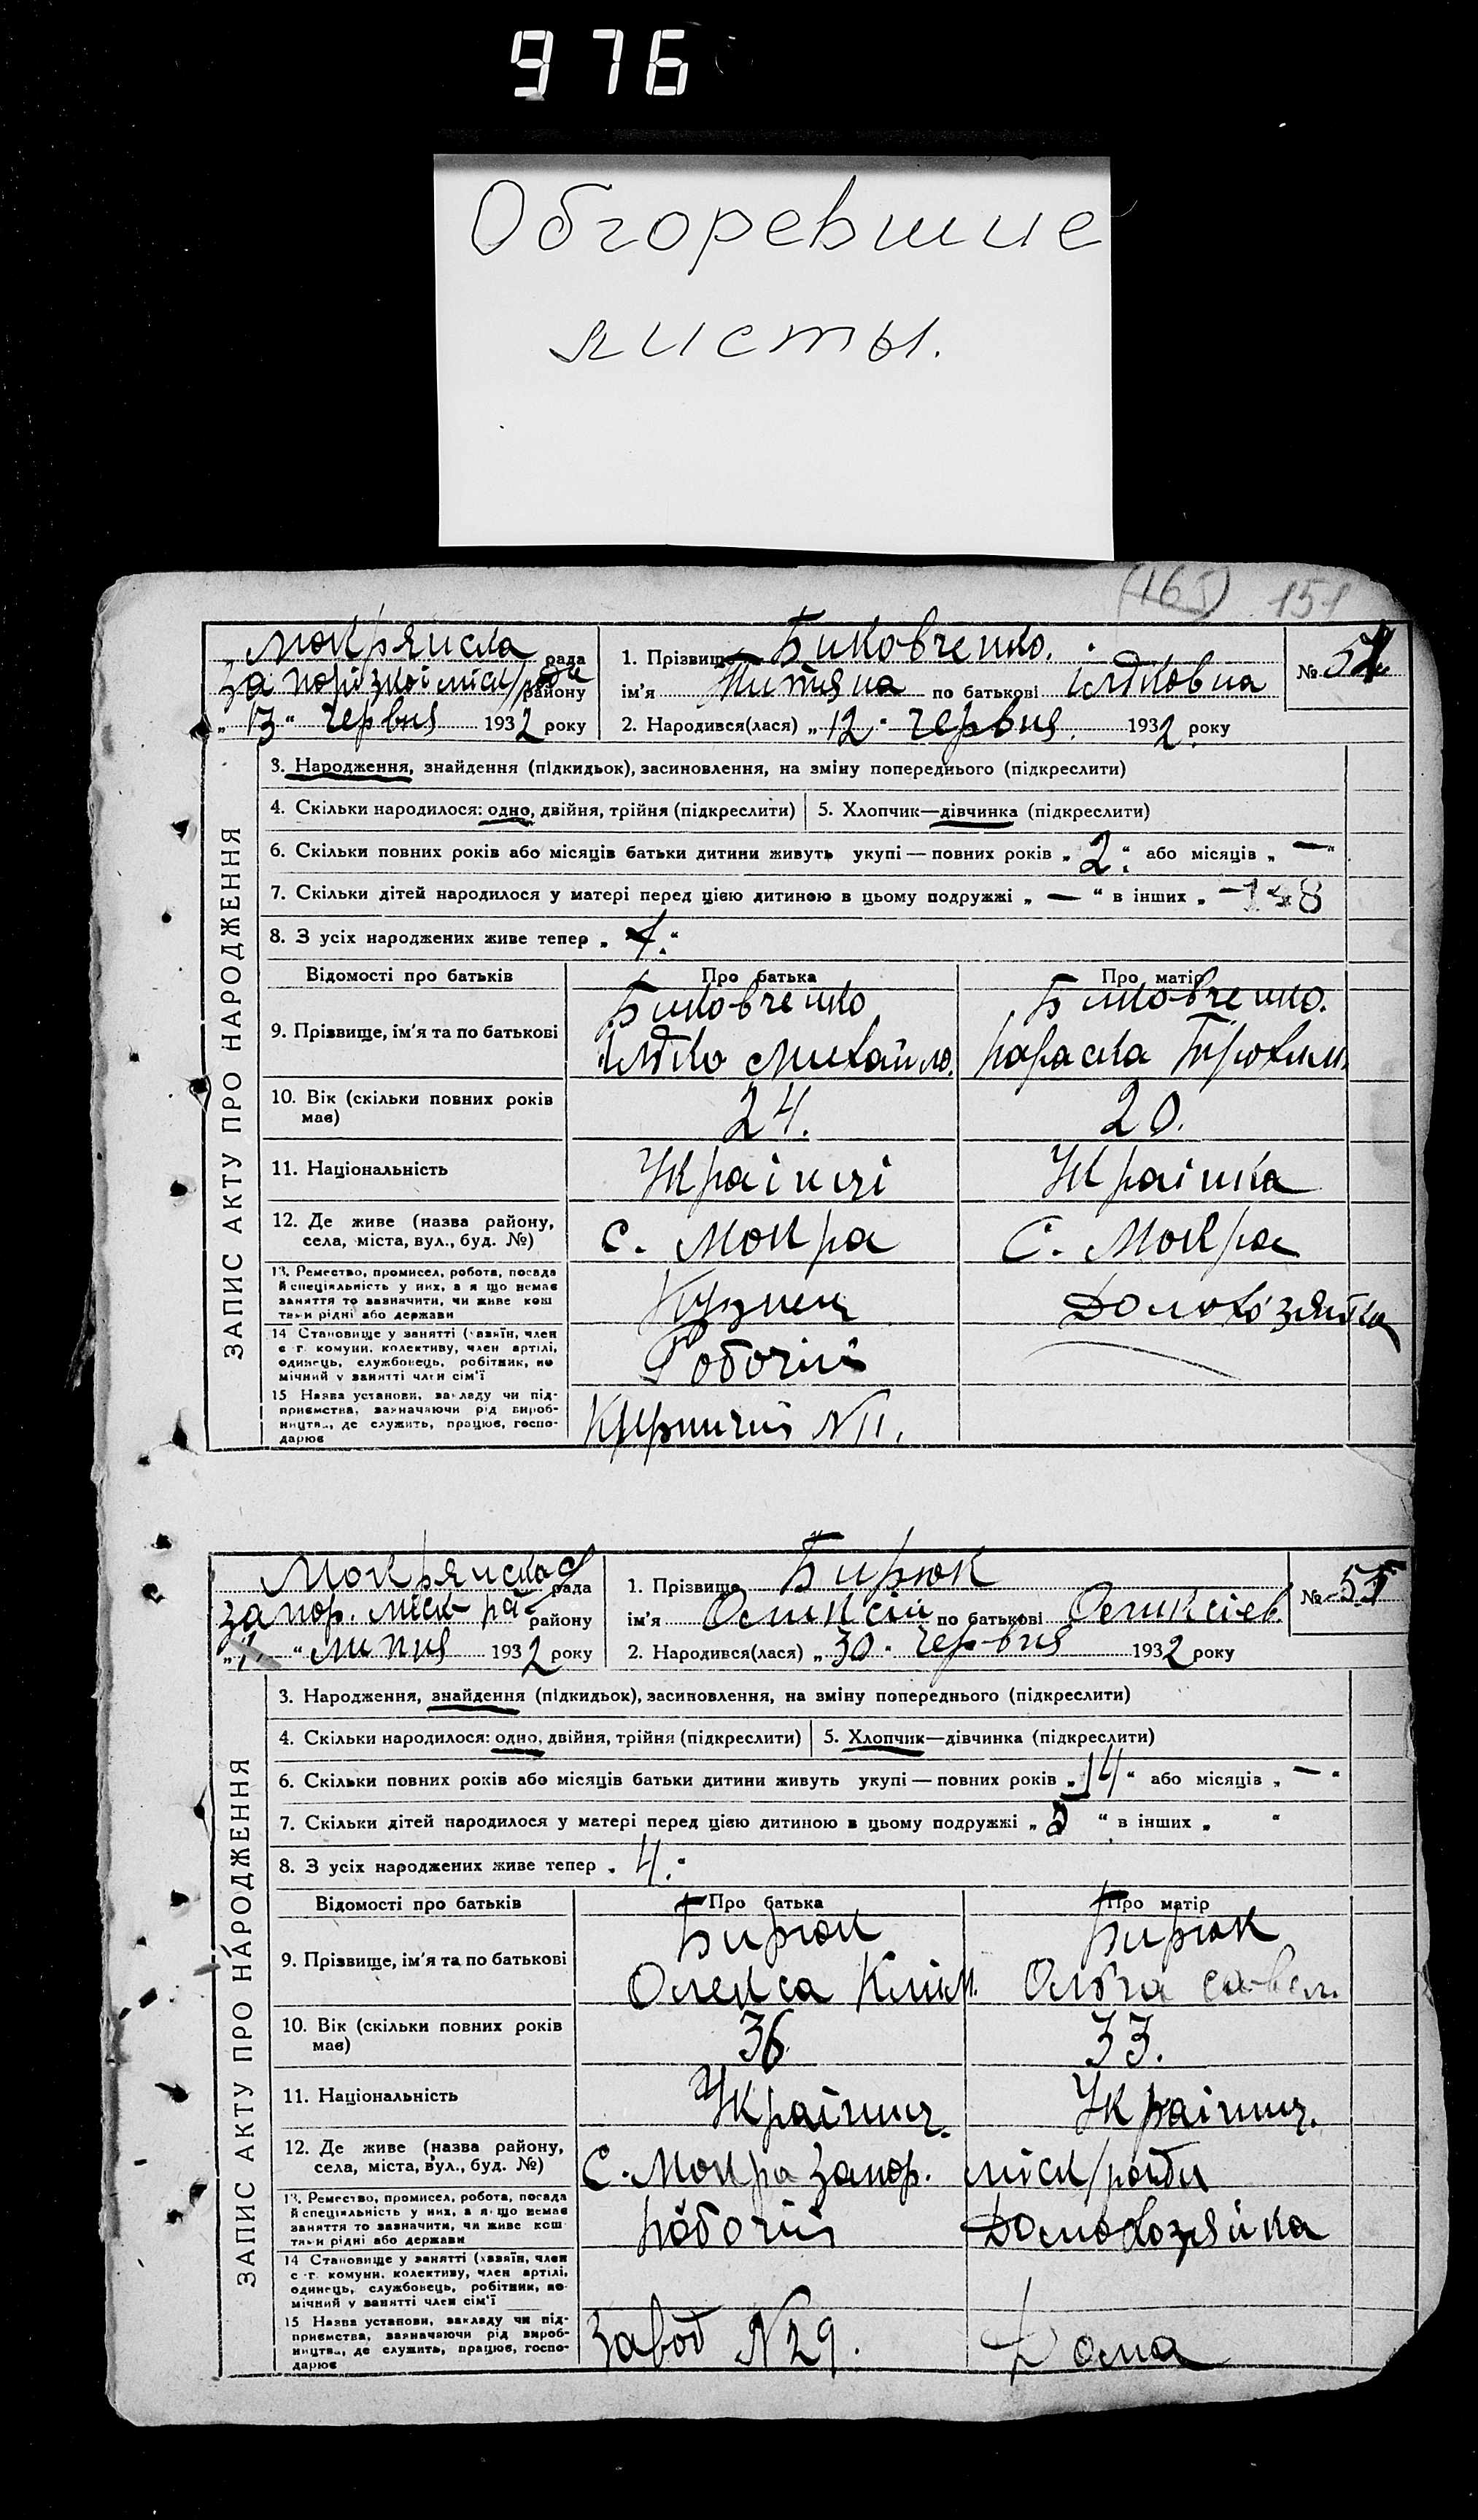 976
Обгоревшие
листы.
(165) 151
Мокрянська рада
Запорізкої міск/ради району
„13“ червня 1932 року
1. Прізвище Биковченко.
ім'я по батькові
2. Народився(лася) „12“ червня 1932 року
№ 54
ЗАПИС АКТУ ПРО НАРОДЖЕННЯ
3. Народження, знайдення (підкидьок), засиновлення, на зміну попереднього (підкреслити)
4. Скільки народилося: одно, двійня, трійня (підкреслити)
5. Хлопчик—дівчинка (підкреслити)
6. Скільки повних років або місяців батьки дитини живуть укупі — повних років „2“ або місяців „—“
7. Скільки дітей народилося у матері перед цією дитиною в цьому подружжі „—“ в інших „
8. З усіх народжених живе тепер „
Відомості про батьків
Про батька
Про матір
9. Прізвище, ім'я та по батькові
Биковченко
Михайло.
Биковченко.
Параска
10. Вік (скільки повних років має)
24.
20.
11. Національність
Українці
Українка
12. Де живе (назва району, села, міста, вул., буд. №)
с. Мокра
С. Мокра
13. Ремество, промисел, робота, посада й спеціяльність у них, а я що немає заняття то зазначити, чи живе кош тами рідні або держави
Кузнец
Домохозяйка
14 Становище у занятті (хазяїн, член с г. комуни, колективу, член артілі, одинець, службовець, робітник, по мічний у занятті член сім'ї
Робочий
15 Назва установи, закладу чи підприємства, зазначаючи рід виробництва, де служить, працює, господарює
Кирпичний N 11.
Мокрянська рада
запор. міск ра району
„1“ липня 1932 року
1. Прізвище Бирюк
ім'я Олексій по батькові Олексієв.
2. Народився(лася) „30“ червня 1932 року
№ 55
ЗАПИС АКТУ ПРО НАРОДЖЕННЯ
3. Народження, знайдення (підкидьок), засиновлення, на зміну попереднього (підкреслити)
4. Скільки народилося: одно, двійня, трійня (підкреслити)
5. Хлопчик—дівчинка (підкреслити)
6. Скільки повних років або місяців батьки дитини живуть укупі — повних років „14“ або місяців „—“
7. Скільки дітей народилося у матері перед цією дитиною в цьому подружжі „5“ в інших „ “
8. З усіх народжених живе тепер „4.“
Відомості про батьків
Про батька
Про матір
9. Прізвище, ім'я та по батькові
Бирюк
Олекса Клим.
Бирюк
Ольга Савел.
10. Вік (скільки повних років має)
36
33.
11. Національність
Українц.
Українц.
12. Де живе (назва району, села, міста, вул., буд. №)
С. Мокра Запор. міск/ради
13. Ремество, промисел, робота, посада й спеціяльність у них, а я що немає заняття то зазначити, чи живе кош тами рідні або держави
робочий
Домохозяйка
14 Становище у занятті (хазяїн, член с г. комуни, колективу, член артілі, одинець, службовець, робітник, помічний у занятті член сім'ї
15 Назва установи, закладу чи підприємства, зазначаючи рід виробництва, де служить, працює, господарює
Завод N 29.
Дома